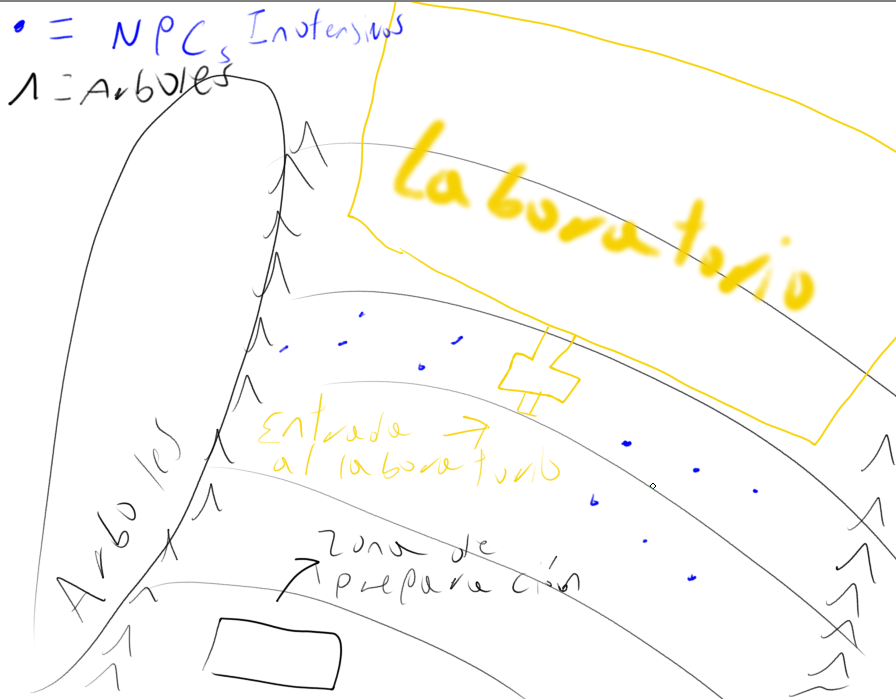 • = NPCs Inofensivos
Λ = Arboles
Laboratorio
Entrada →
al laboratorio
Arboles
Zona de
preparación